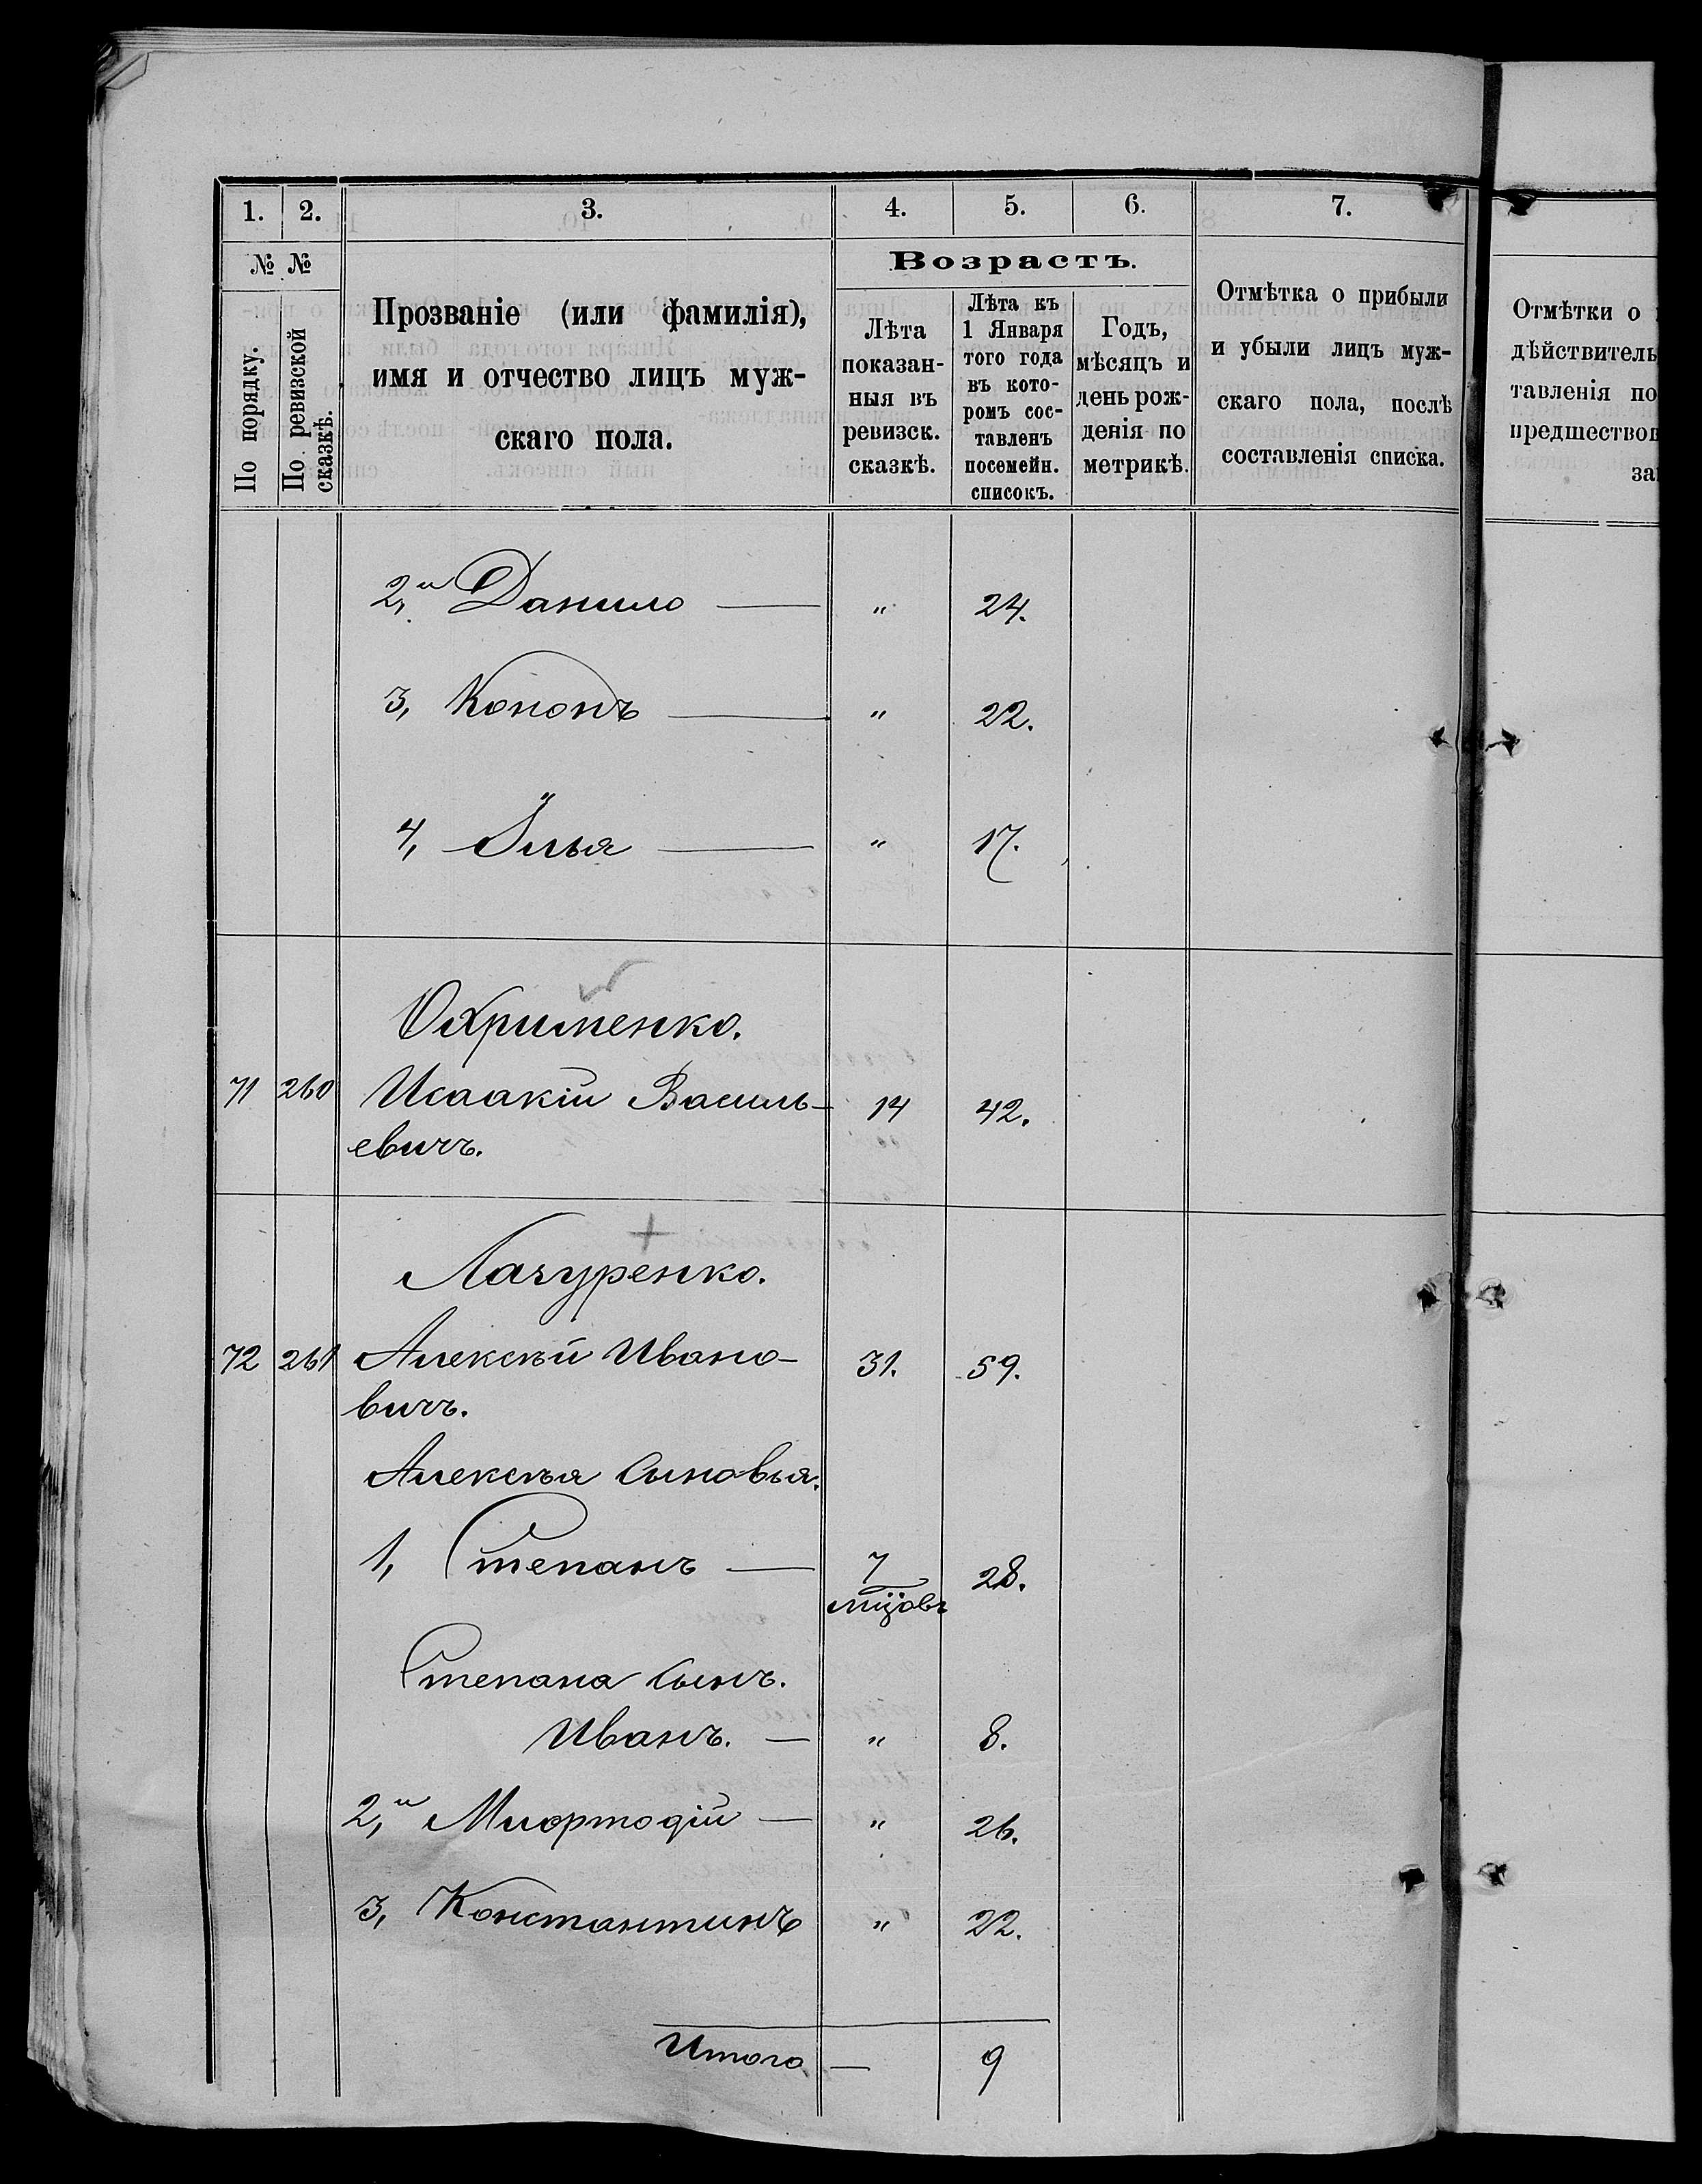 1. 2. 3. 4. 5. 6. 7.
№ №
По порядку.
По ревизской сказкѣ.
Прозваніе (или фамилія),
имя и отчество лицъ муж-
скаго пола.
Возрастъ.
Лѣта
показан-
ныя въ
ревизск.
сказкѣ.
Лѣта къ
1 Января
того года
въ кото-
ромъ сос-
тавленъ
посемейн.
списокъ.
Годъ,
мѣсяцъ и
день рож-
денія по
метрикѣ.
Отмѣтка о прибыли
и убыли лицъ муж-
скаго пола, послѣ
составленія списка.
Отмѣтки о
дѣйствитель
тавленія по
предшествов
за
2,й Данило — " 24.
3, Кононъ — " 22.
4, Илья — " 17.
Охрименко.
71 260 Исаакій Василь- 14 42.
евичъ.
Лачуренко.
72 261 Алексѣй Ивано- 31. 59.
вичъ.
Алексѣя сыновья.
1, Степанъ — 7 28.
мцовъ
Степана сынъ.
Иванъ. — " 8.
2,й — " 26.
3, Константинъ " 22.
Итого — 9